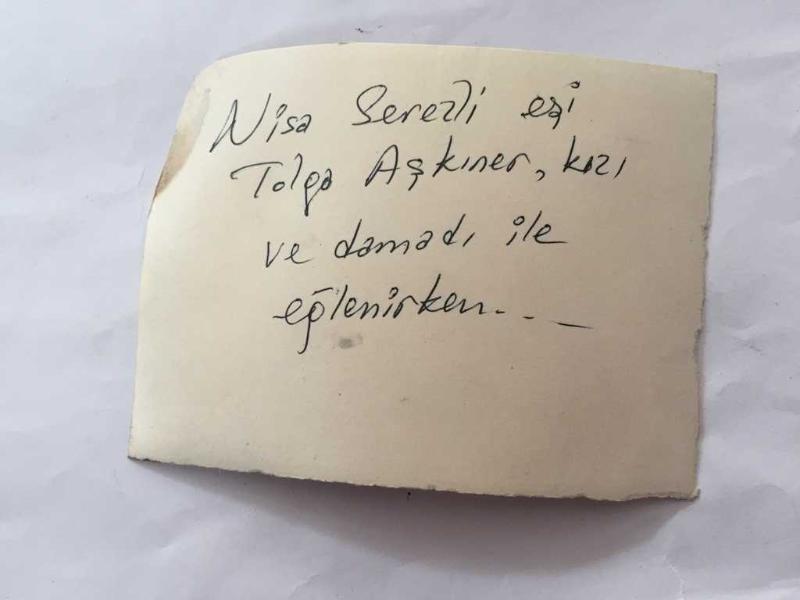 Nisa Serezli eşi
Tolga Aşkıner, kızı
ve damadı ile
eğlenirken...